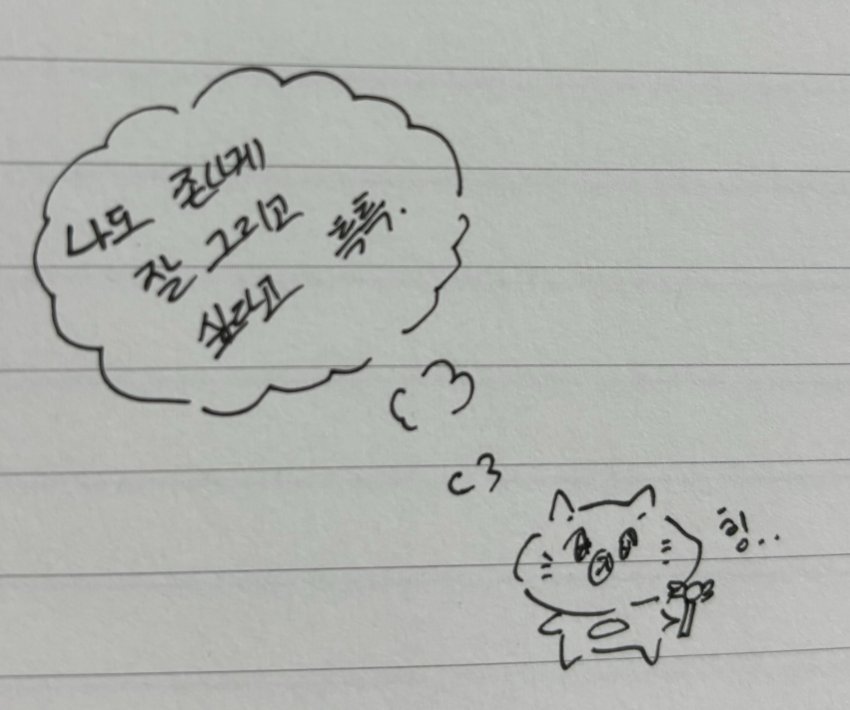 나도 존나게
잘 그리고
싶다고 흑흑.
힝..